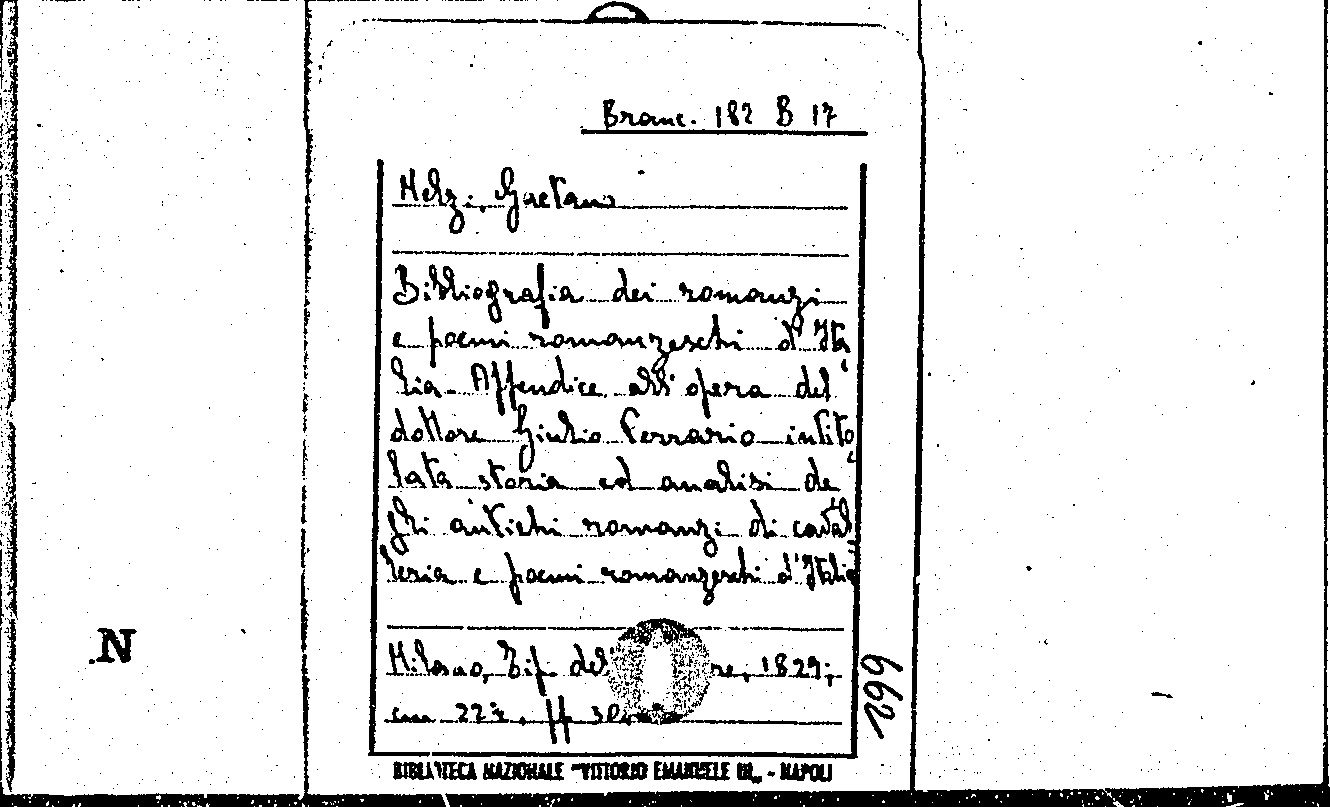 Branc. 182 B 17
Melzi, Gaetano
Bibliografia dei romanzi
e poemi romanzeschi d'Ita
lia - Appendice all'opera del
dottore Giulio Ferrario intito
lata storia ed analisi de
gli antichi romanzi di caval
leria e poemi romanzeschi d'Italia
Milano, Tip. del re, 1829;
cm 22½. pp
N
662
BIBLIOTECA NAZIONALE "VITTORIO EMANUELE III" - NAPOLI